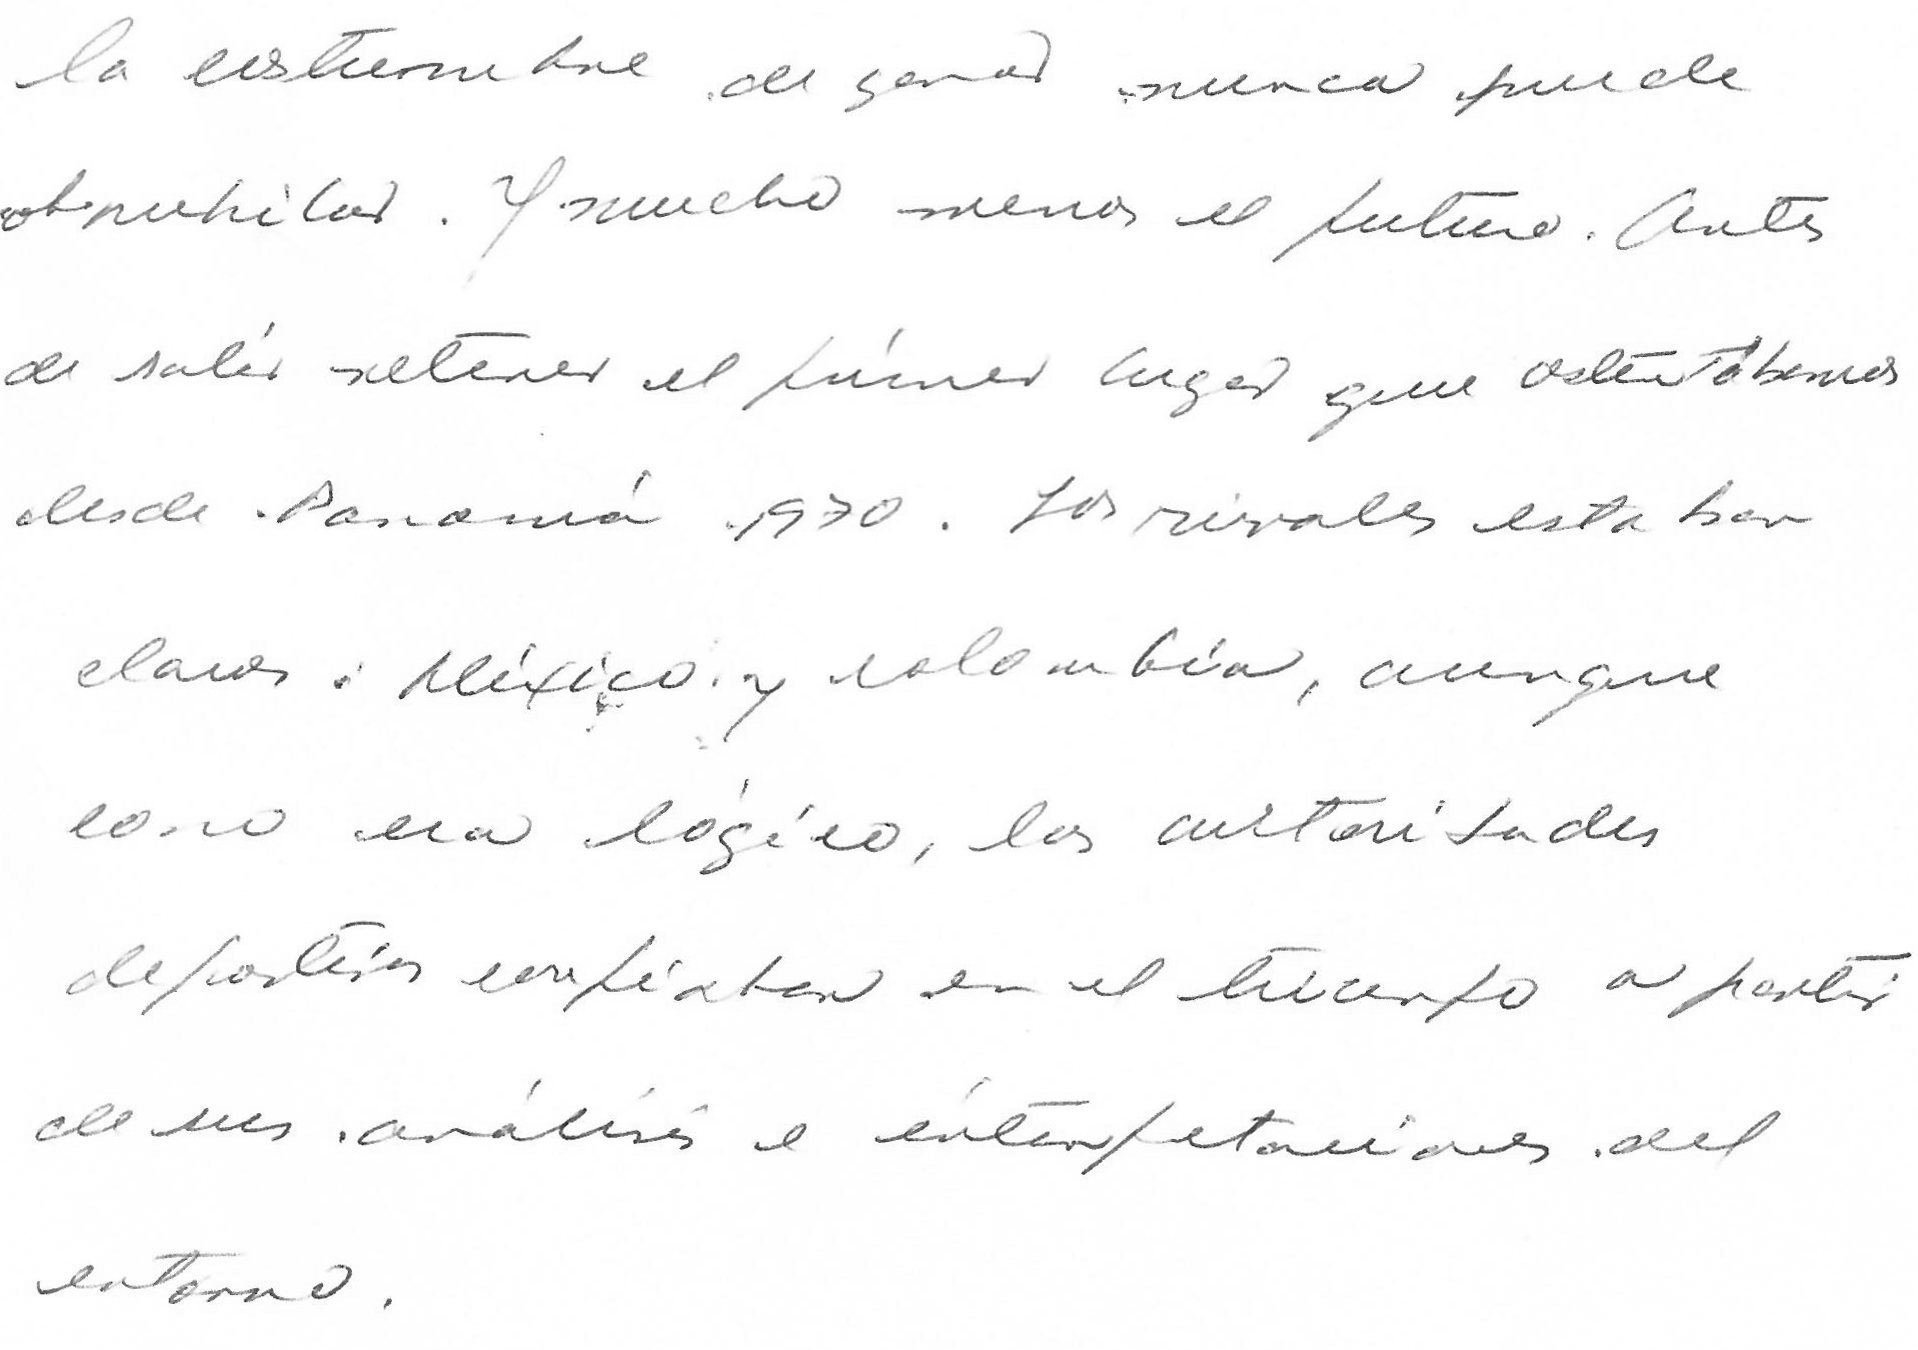 la costumbre de ganar nunca puede
obnubilar. Y mucho menos el futuro. Antes
de salir retener el primer lugar que ostentábamos
desde Panamá 1970. Los rivales estaban
claros: México y Colombia, aunque
como era lógico, las autoridades
deportivas confiaban en el triunfo a partir
de sus análisis e interpretaciones del
entorno.